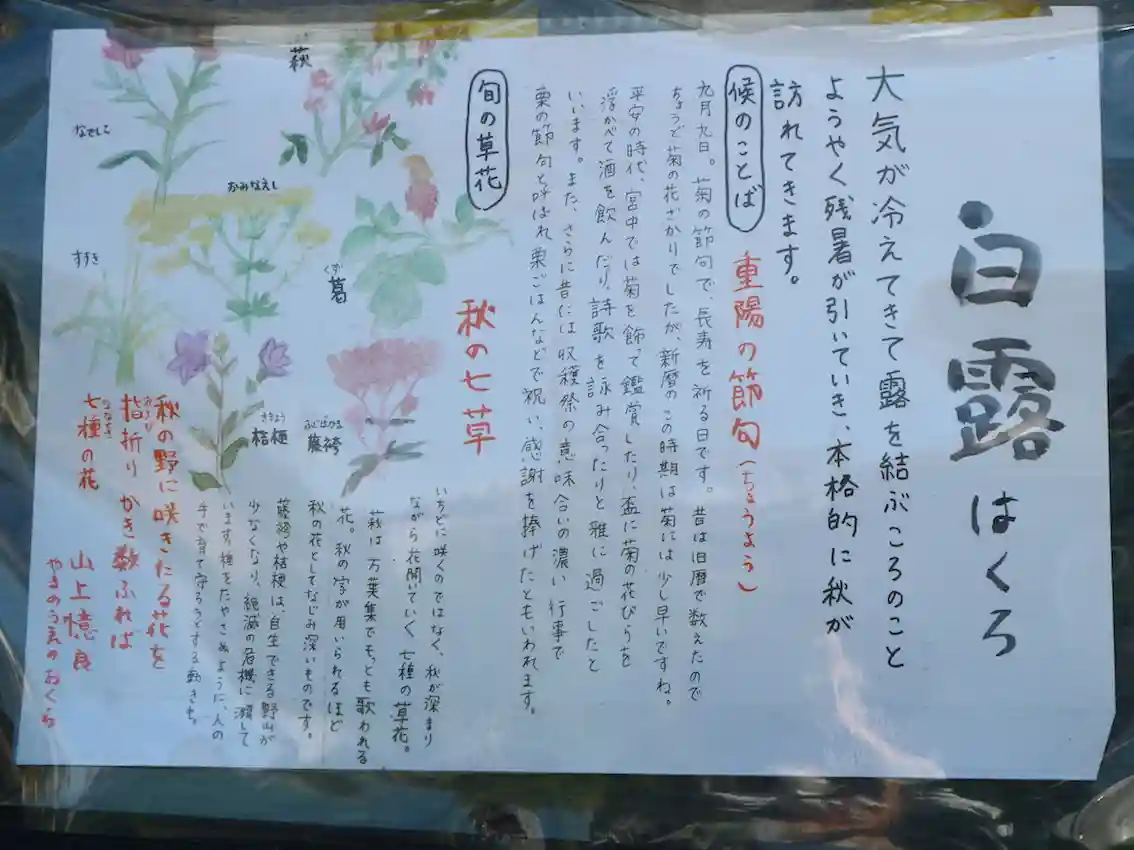 白露 はくろ
大気が冷えてきて露を結ぶころのこと
ようやく残暑が引いていき、本格的に秋が
訪れてきます。
候のことば
重陽の節句(ちょうよう)
九月九日。菊の節句で、長寿を祈る日です。昔は旧暦で数えたので
ちょうど菊の花ざかりでしたが、新暦のこの時期は菊には少し早いですね。
平安の時代、宮中では菊を飾って鑑賞したり、盃に菊の花びらを
浮かべて酒を飲んだり、詩歌を詠み合ったりと雅に過ごしたと
いいます。また、さらに昔には収穫祭の意味合いの濃い行事で
栗の節句と呼ばれ栗ごはんなどで祝い、感謝を捧げたともいわれます。
旬の草花
秋の七草
いちどに咲くのではなく、秋が深まり
ながら花開いていく七種の草花。
萩は万葉集でもっとも歌われる
花。秋の字が用いられるほど
秋の花としてなじみ深いものです。
藤袴や桔梗は、自生できる野山が
少なくなり、絶滅の危機に瀕して
います。種をたやさぬように、人の
手で育て守ろうとする動きも。
萩
なでしこ
おみなえし
すすき
くず
葛
ききょう
桔梗
ふじばかま
藤袴
秋の野に咲きたる花を
指折りかき数ふれば
おより
七種の花
ななくさ
山上憶良
やまのうえのおくら